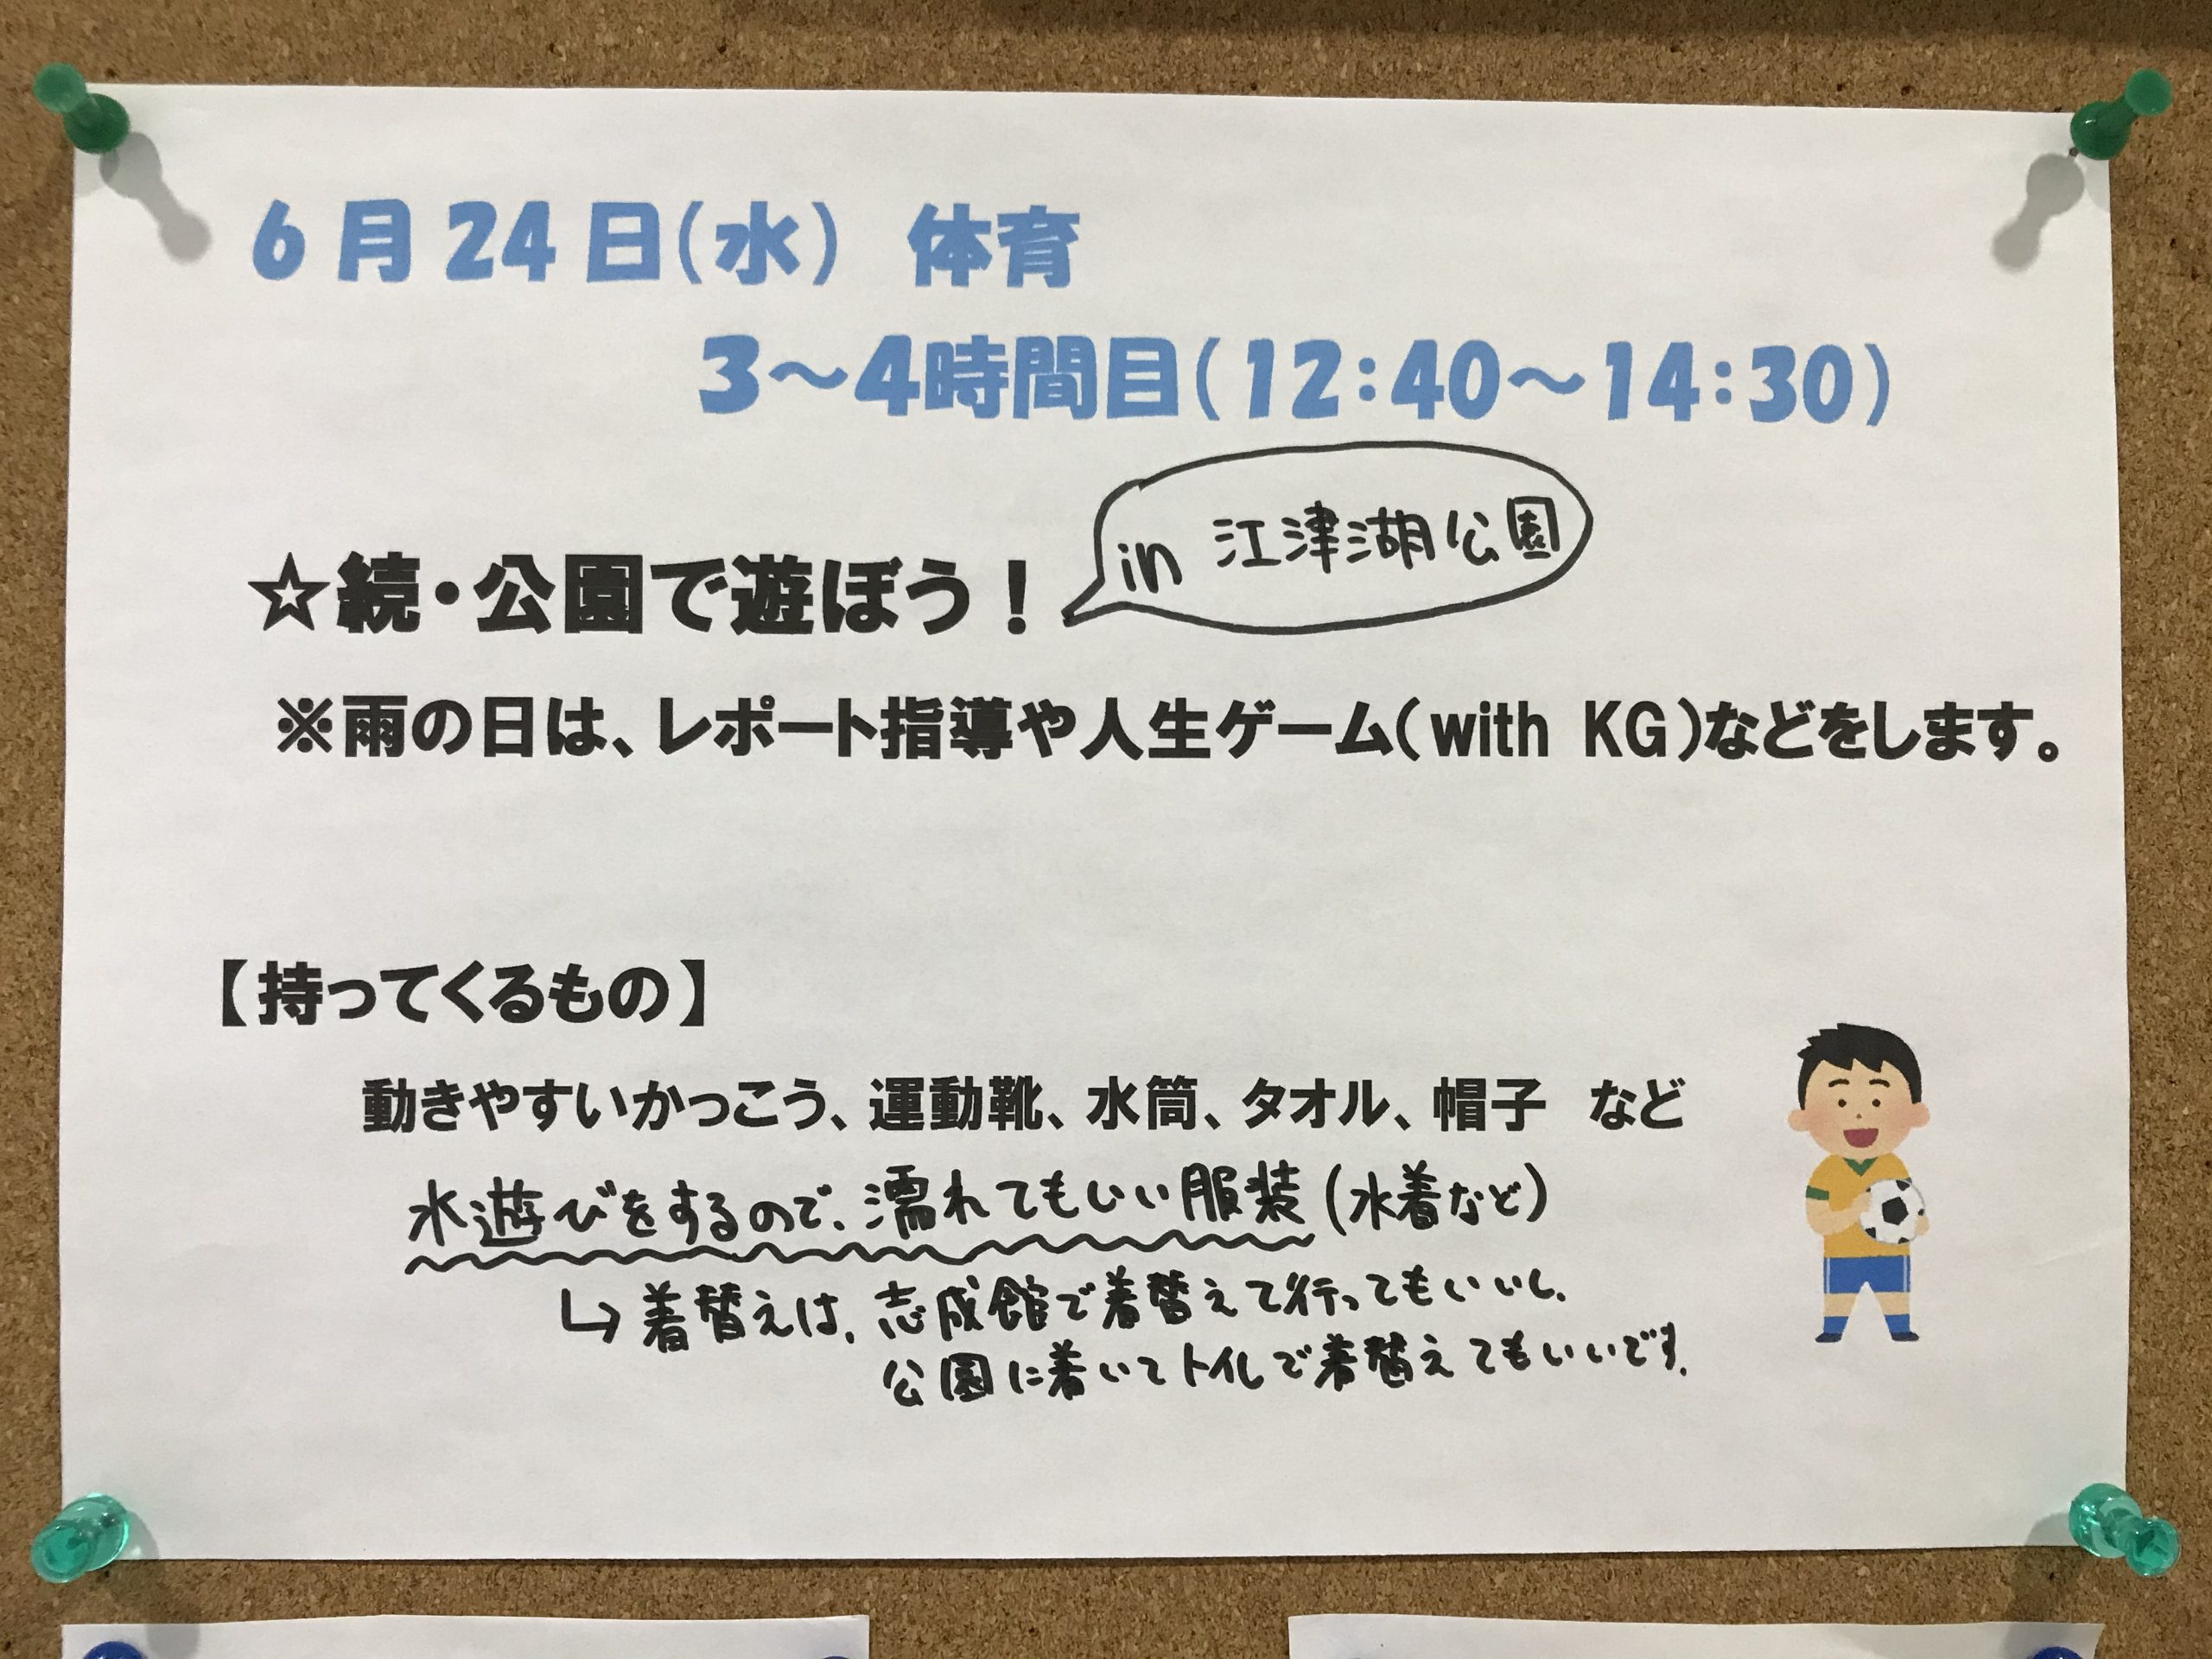 6月24日(水) 体育
3～4時間目(12:40～14:30)
in 江津湖公園
☆続・公園で遊ぼう！
※雨の日は、レポート指導や人生ゲーム(with KG)などをします。
【持ってくるもの】
動きやすいかっこう、運動靴、水筒、タオル、帽子 など
水遊びをするので、濡れてもいい服装(水着など)
↳着替えは、志成館で着替えて行ってもいいし、
公園に着いてトイレで着替えてもいいです。